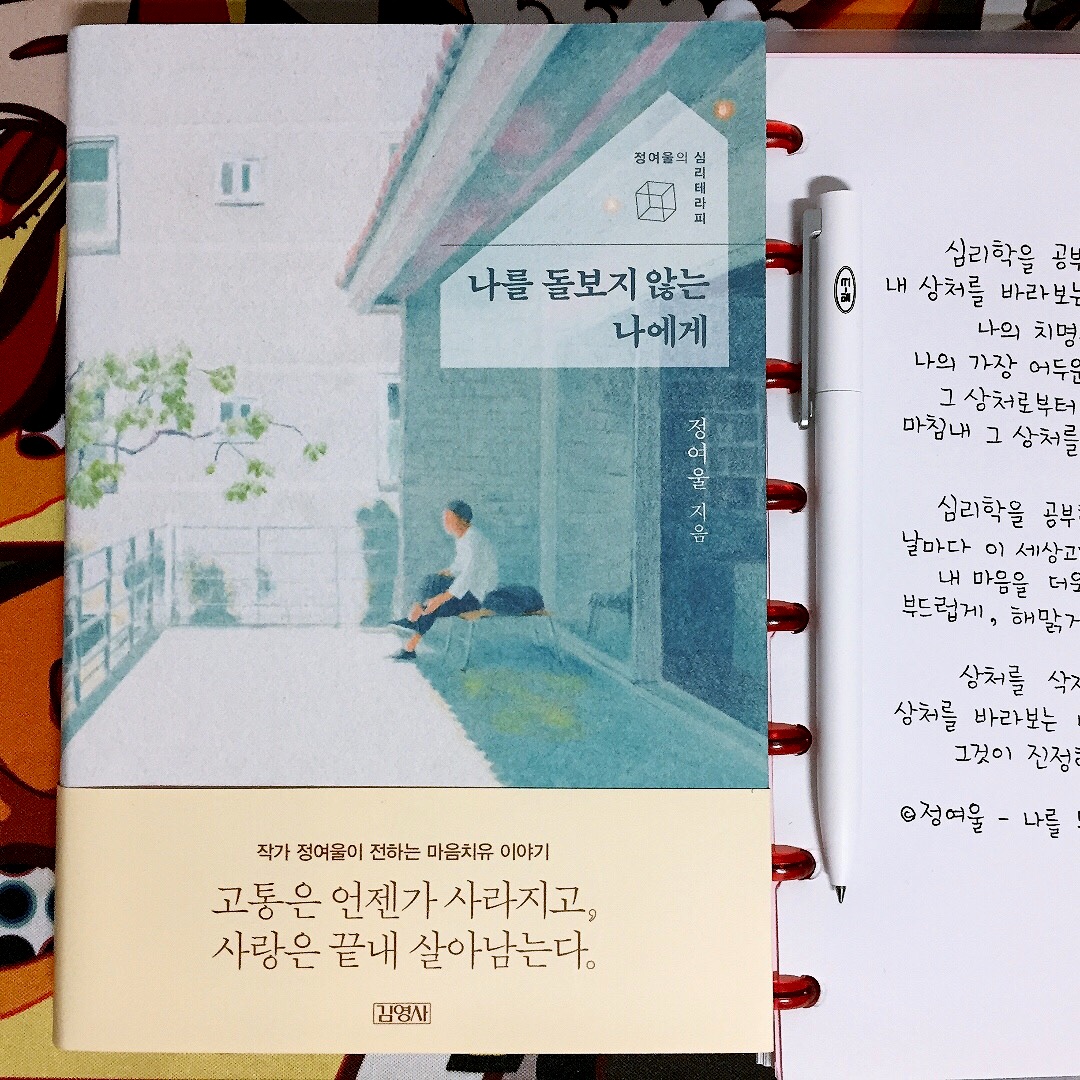 정여울의 심리테라피
나를 돌보지 않는
나에게
정여울 지음
작가 정여울이 전하는 마음치유 이야기
고통은 언젠가 사라지고,
사랑은 끝내 살아남는다。
김영사
심리학을 공부
내 상처를 바라보는
나의 치명
나의 가장 어두운
그 상처로부터
마침내 그 상처를
심리학을 공부
날마다 이 세상
내 마음을 더욱
부드럽게, 해맑게
상처를 삭제
상처를 바라보는
그것이 진정
©정여울 - 나를